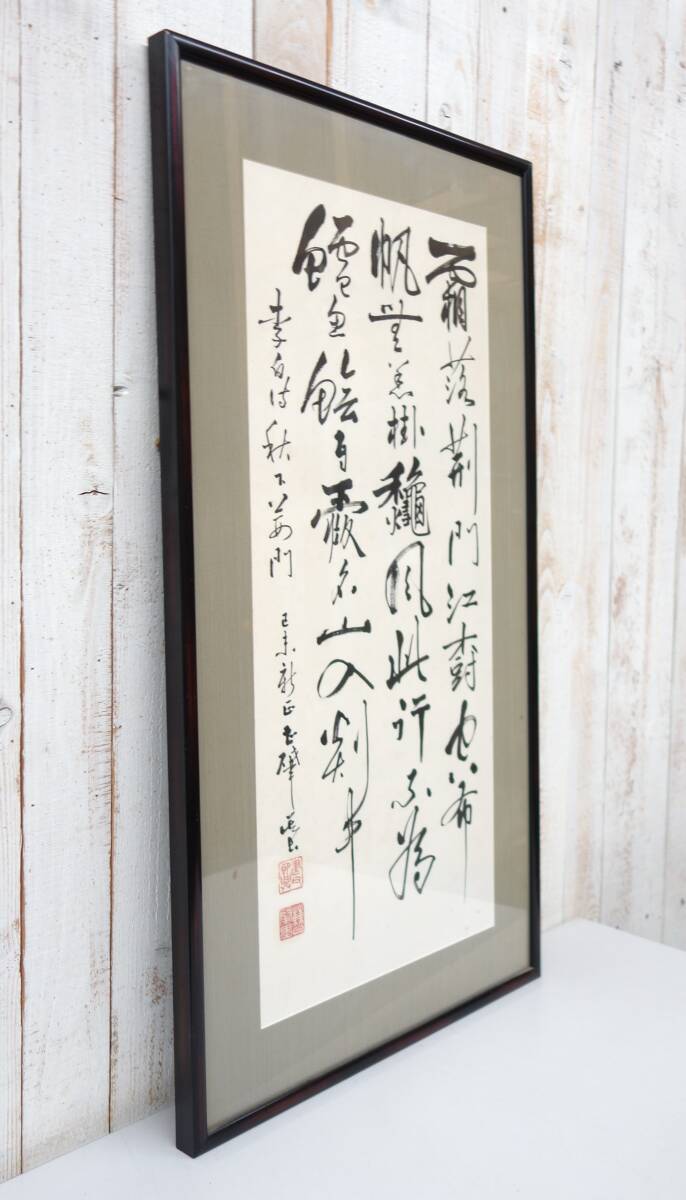 霜落荊門江樹空布
帆無恙掛龝風此行不為
鱸魚鱠自愛名山入剡中
李白詩秋下荊門 己未新正